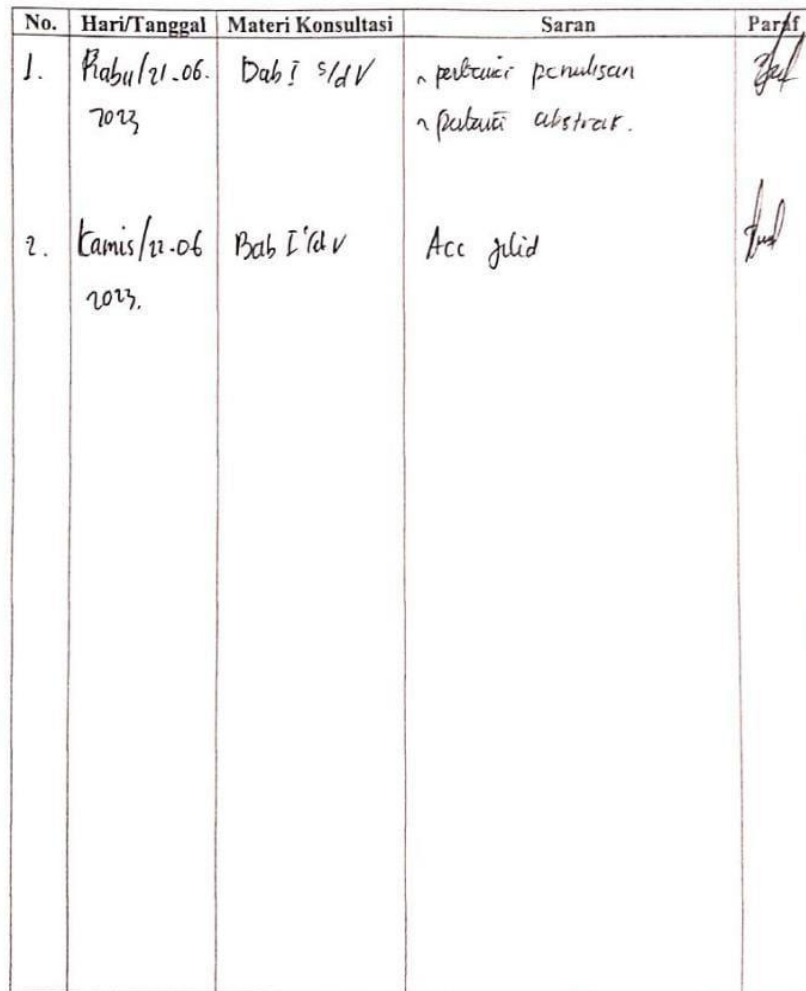 No. Hari/Tanggal Materi Konsultasi Saran Paraf
1. Rabu/21-06. Bab I s/d V ~ perbaiki penulisan
2023 ~ perbaiki abstrak.
2. Kamis/22-06 Bab I s/d V Acc jilid
2023.